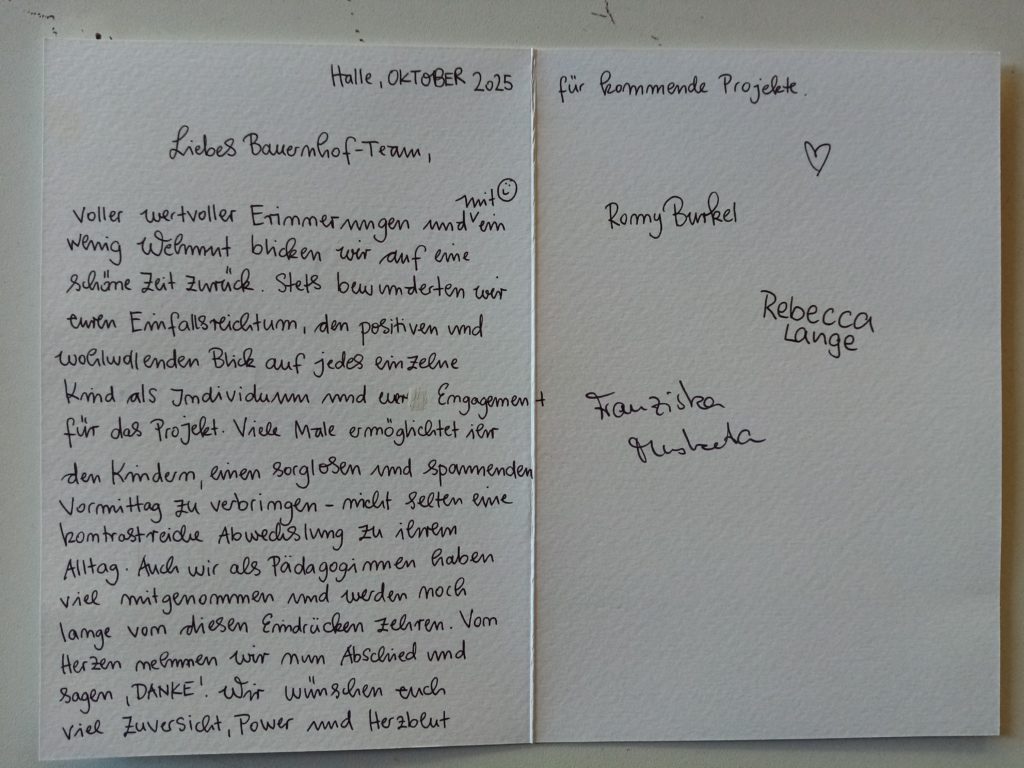 Halle, OKTOBER 2025
Liebes Bauernhof-Team,
voller wertvoller Erinnerungen und mit ☺ ein
wenig Wehmut blicken wir auf eine
schöne Zeit zurück. Stets bewunderten wir
euren Einfallsreichtum, den positiven und
wohlwollenden Blick auf jedes einzelne
Kind als Individuum und euer Engagement
für das Projekt. Viele Male ermöglichtet ihr
den Kindern, einen sorglosen und spannenden
Vormittag zu verbringen – nicht selten eine
kontrastreiche Abwechslung zu ihrem
Alltag. Auch wir als Pädagoginnen haben
viel mitgenommen und werden noch
lange von diesen Eindrücken zehren. Von
Herzen nehmen wir nun Abschied und
sagen ‚DANKE'. Wir wünschen euch
viel Zuversicht, Power und Herzblut
für kommende Projekte.
♡
Romy Burkel
Rebecca
Lange
Franziska